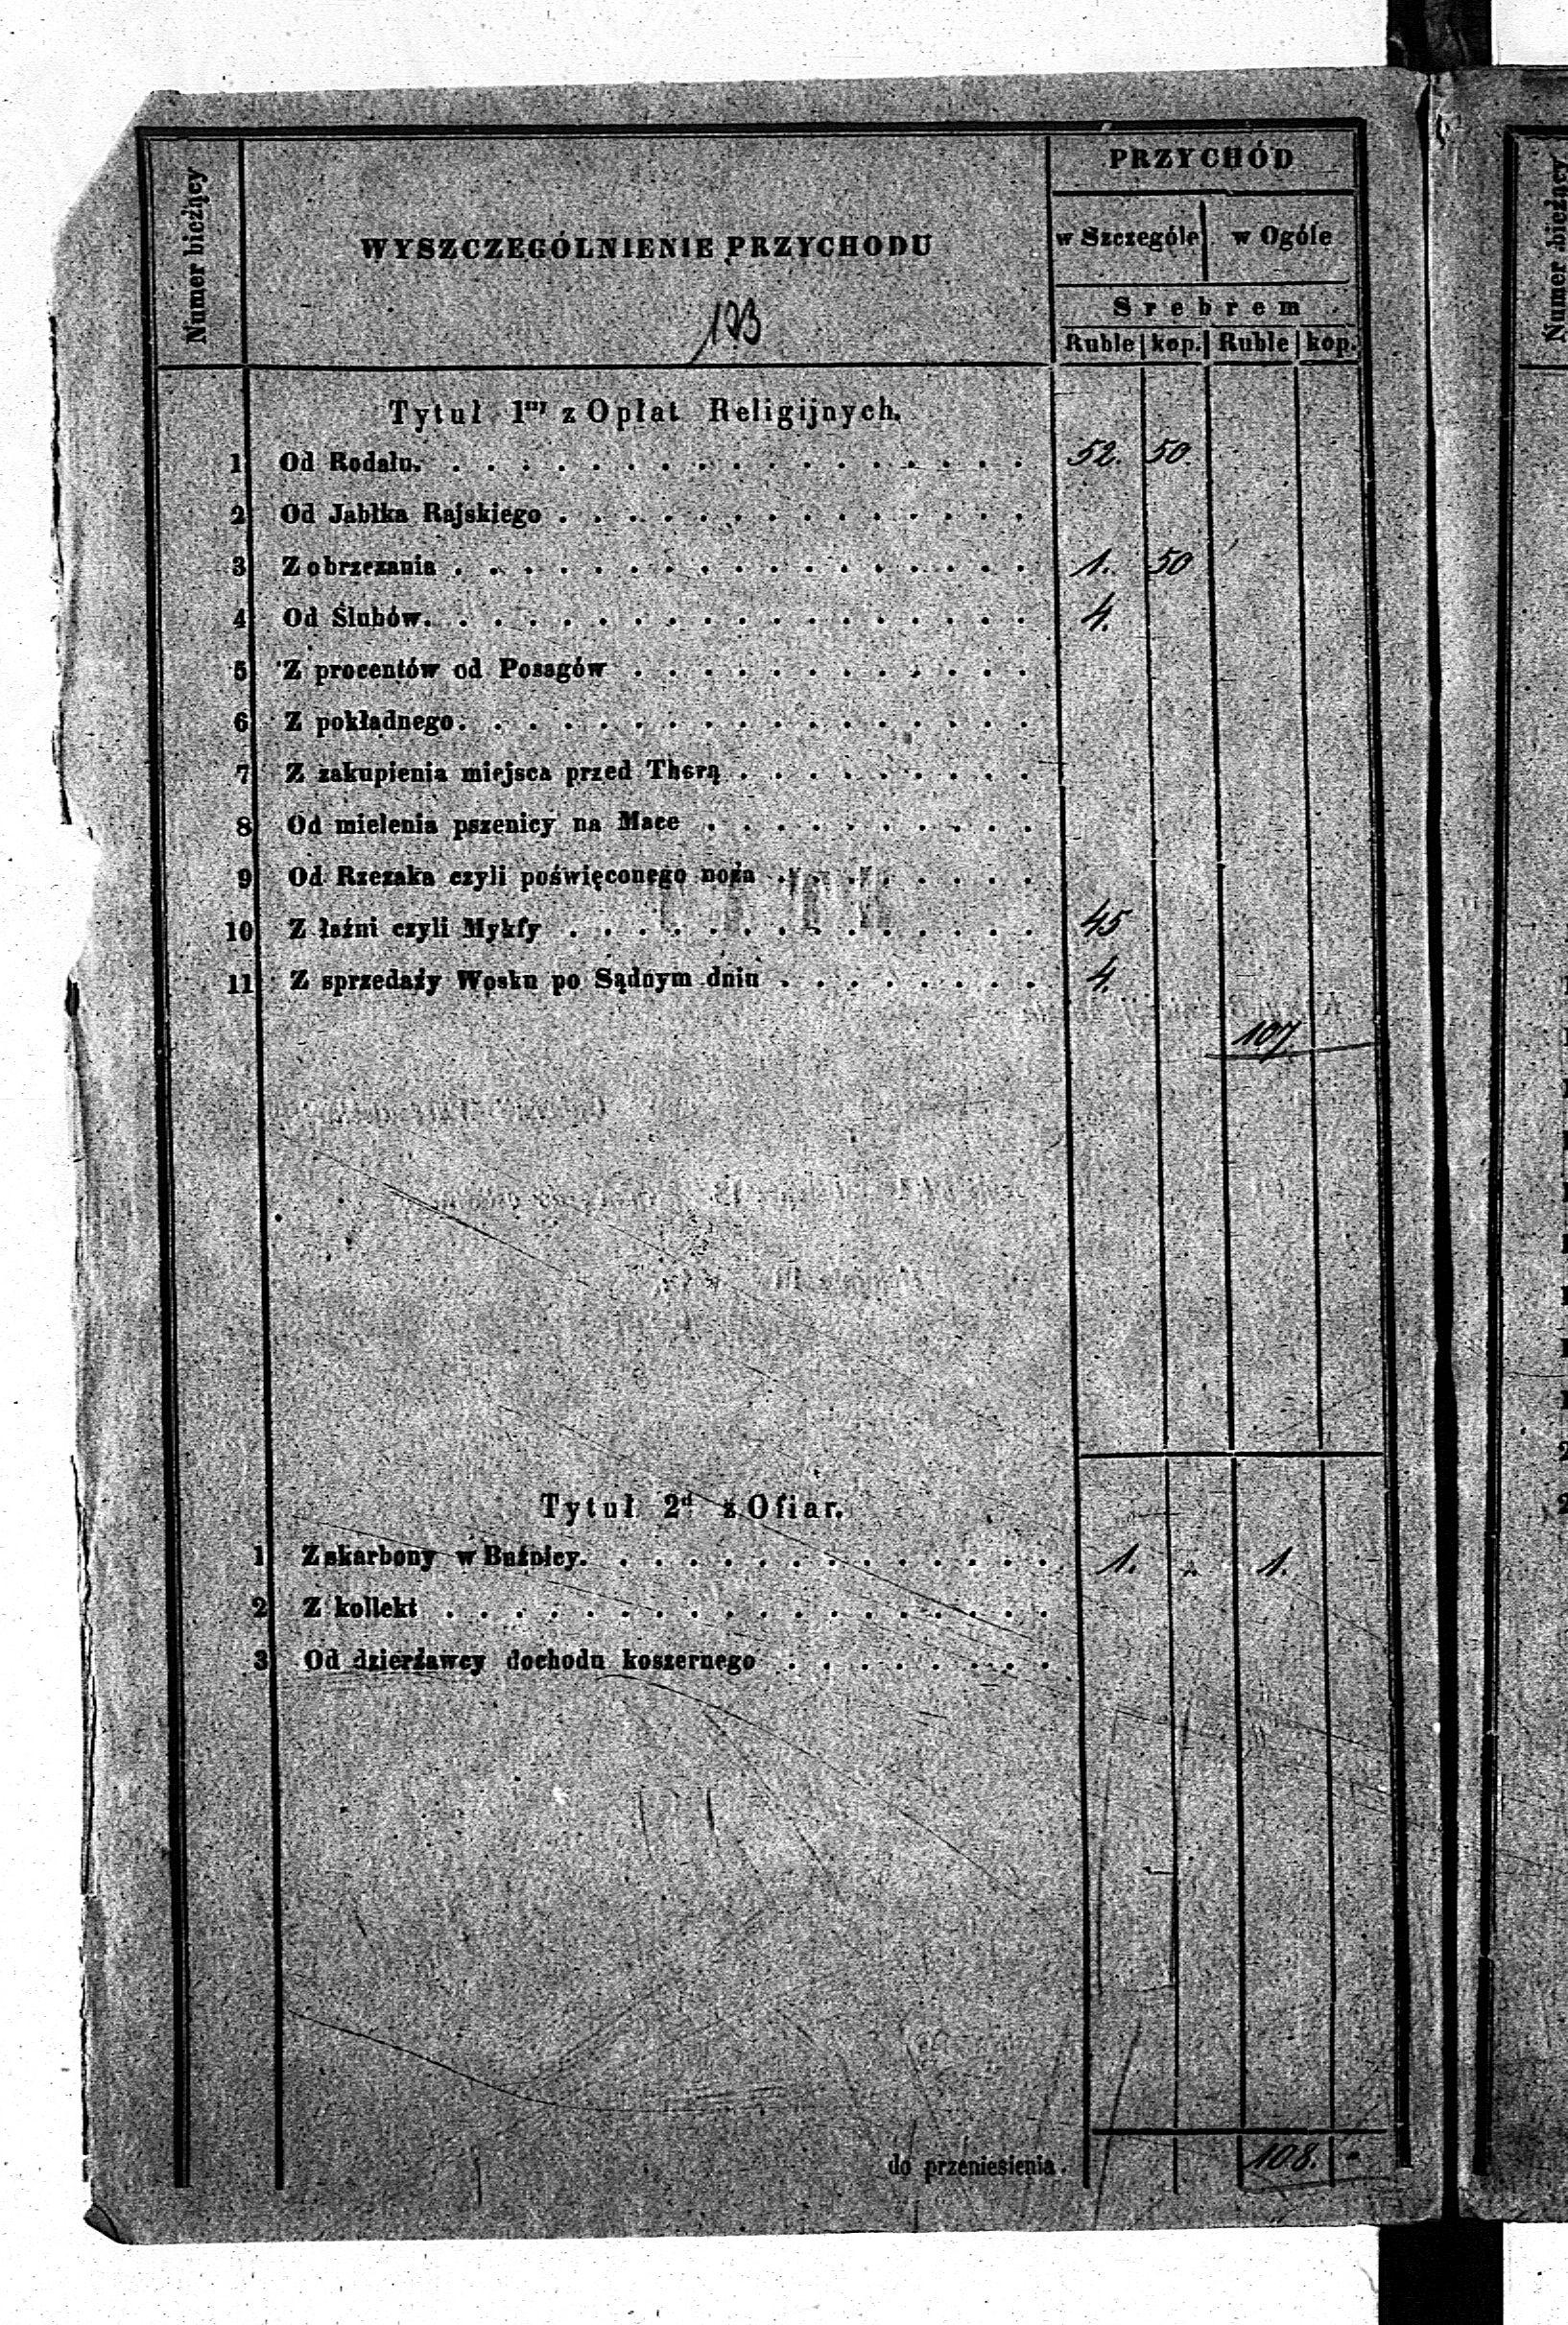 Numer bieżący
WYSZCZEGÓLNIENIE PRZYCHODU
PRZYCHÓD
w Szczególe w Ogóle
Srebrem
Ruble kop. Ruble kop.
Tytuł 1ny z Opłat Religijnych.
1 Od Rodału. 52. 50.
2 Od Jabłka Rajskiego
3 Z obrzezania 1. 50
4 Od Ślubów. 4.
5 Z procentów od Posagów
6 Z pokładnego.
7 Z zakupienia miejsca przed Thorą
8 Od mielenia pszenicy na Mace
9 Od Rzezaka czyli poświęconego noża
10 Z łaźni czyli Mykfy 45
11 Z sprzedaży Wosku po Sądnym dniu 4.
107
Tytuł 2d z Ofiar.
1 Z skarbony w Buźnicy. 1. 1.
2 Z kollekt
3 Od dzierżawcy dochodu koszernego
do przeniesienia. 108.
Numer bieżący